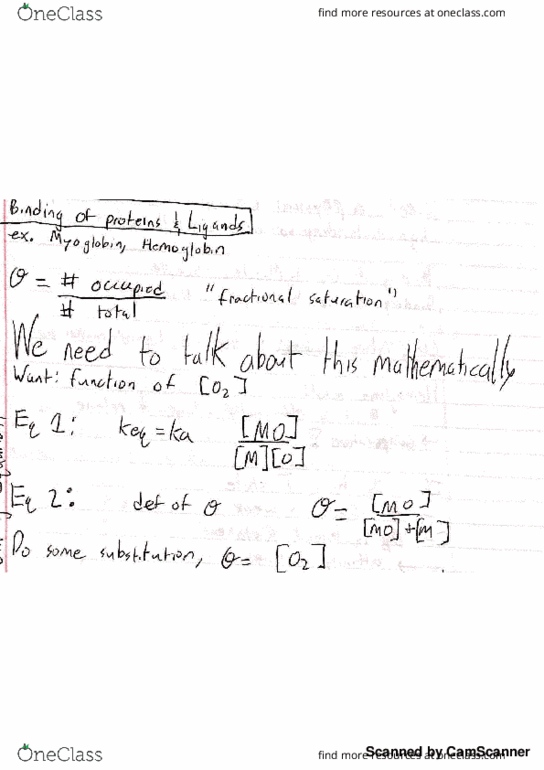 OneClass
find more resources at oneclass.com
Binding of proteins & Ligands
ex. Myoglobin, Hemoglobin
θ = # occupied / # total "fractional saturation"
We need to talk about this mathematically
Want: function of [O₂]
Eq 1: keq = ka [MO] / [M][O]
Eq 2: def of θ θ = [MO] / [MO] + [M]
Do some substitution, θ = [O₂]
OneClass
find more resources at oneclass.com
Scanned by CamScanner